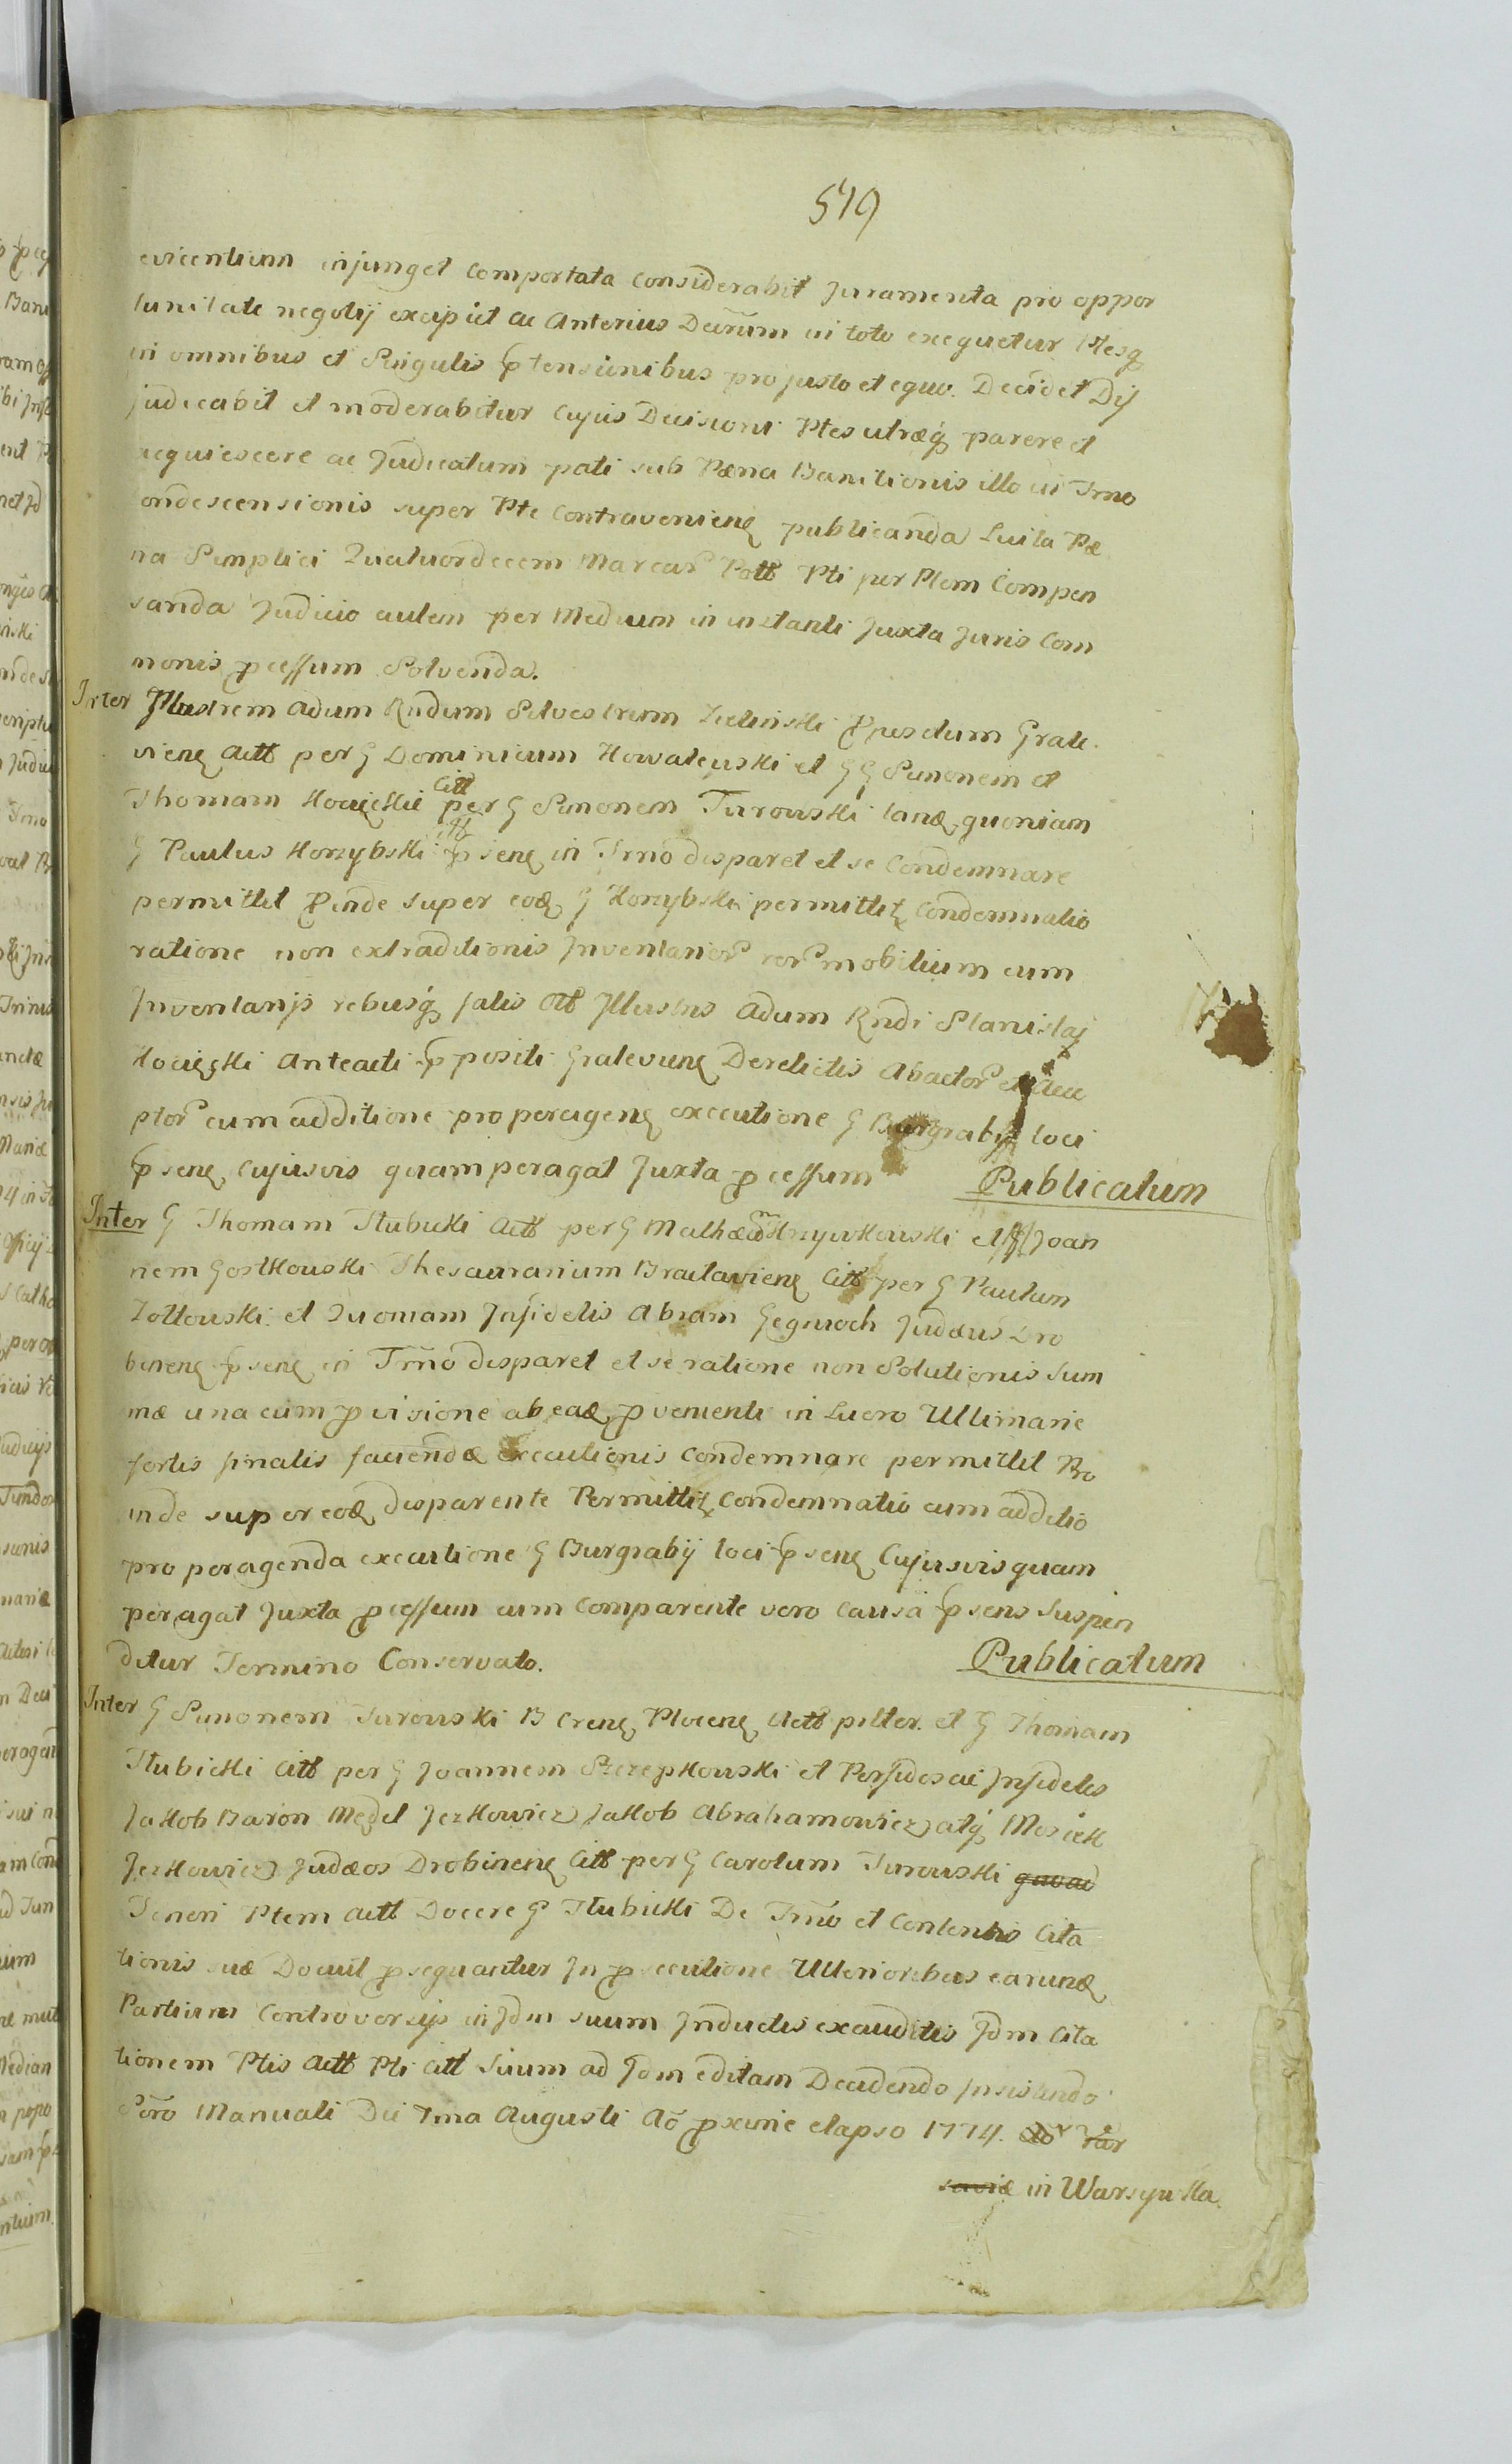 549
evicentium injunget Comportata Considerabit Juramenta pro oppor
tunitate negotij excipiet ac Anterius Decrum in toto exequetur Ptesq
in omnibus et Singulis ptensionibus pro justo et equo. Decidet Dij
judicabit et moderabitur Cujus Decisioni Ptes utræq parere et
acquiescere ac Judicatum pati sub Pæna Banitionis illo in Trno
ondescensionis super Pte Contravenieng publicanda Luita Pæ
na Simplici Quatuordecem Marcar Pott Pti per Ptem Compen
sanda Judicio autem per Medium in instanti Juxta Juris Com
monis pcessum Solvenda.
Inter Illustrem Adum Rndum Silvestrem Præpositum Grate
vieng Actt per G Dominicum Nowateuski et G G Simonem et
Thomam Citt per G Simonem Turowski tanq quoniam
G Paulus Korzybski pseng in Trno disparet et se Condemnare
permittet Pinde super eoq G Korzybski permittitz Condemnatio
ratione non extraditionis Inventarior rer mobilium cum
Inventarijs rebusq talis Illustris Adum Rndi Stanislaj
Anteacti ppositi Grateviene Derelictis Abactor et Acce
ptor cum additione pro perageng executione G Burgrabij loci
pseng Cujusvis quam peragat Juxta pcessum Publicatum
Inter G Thomam Stubicki Actt per G Mathæum Krzywkowski et Joan
nem Gostkowski Thesaurarium Braclavieng Citt per G Paulum
Zottowski et Quoniam Infidelis Abram Judæus Dro
bineng pseng in Trno disparet et se ratione non Solutionis Sum
mæ una cum pvisione ab eaq pvenienti in Lucro Ultimarie
fortis finalis faciendæ executionis Condemnare permittet Pro
inde super eoq disparente Permittitz Condemnatio cum additio
pro peragenda executione G Burgrabij loci pseng Cujusvis quam
peragat Juxta pcessum cum Comparente vero Causa psens Suspen
ditur Termino Conservato. Publicatum
Inter G Simonem Turowski B Creng Ploceng Actt plter. et G Thomam
Stubicki Citt per G Joannem Szczepkowski et Perfidos ac Infideles
Jakob Baron Jezkowicz Jakob Abrahamowicz atq Mosiek
Jezkowicz Judæos Drobineng Citt per G Carolum Turowski quoad
Teneri Ptem Actt Docere G Stubicki De Trno et Contentis Cita
tionis suæ Docuit psequantur In psecutione Ulterioribus earunq
Partium Controversijs in Jdm suum Inductis exauditis Jdm Cita
tionem Ptis Actt Pti Citt Suum ad Jdm editam Decidendo Insistendo
Manuali Die 7ma Augusti Ao pxime elapso 1774. Var
saviæ in